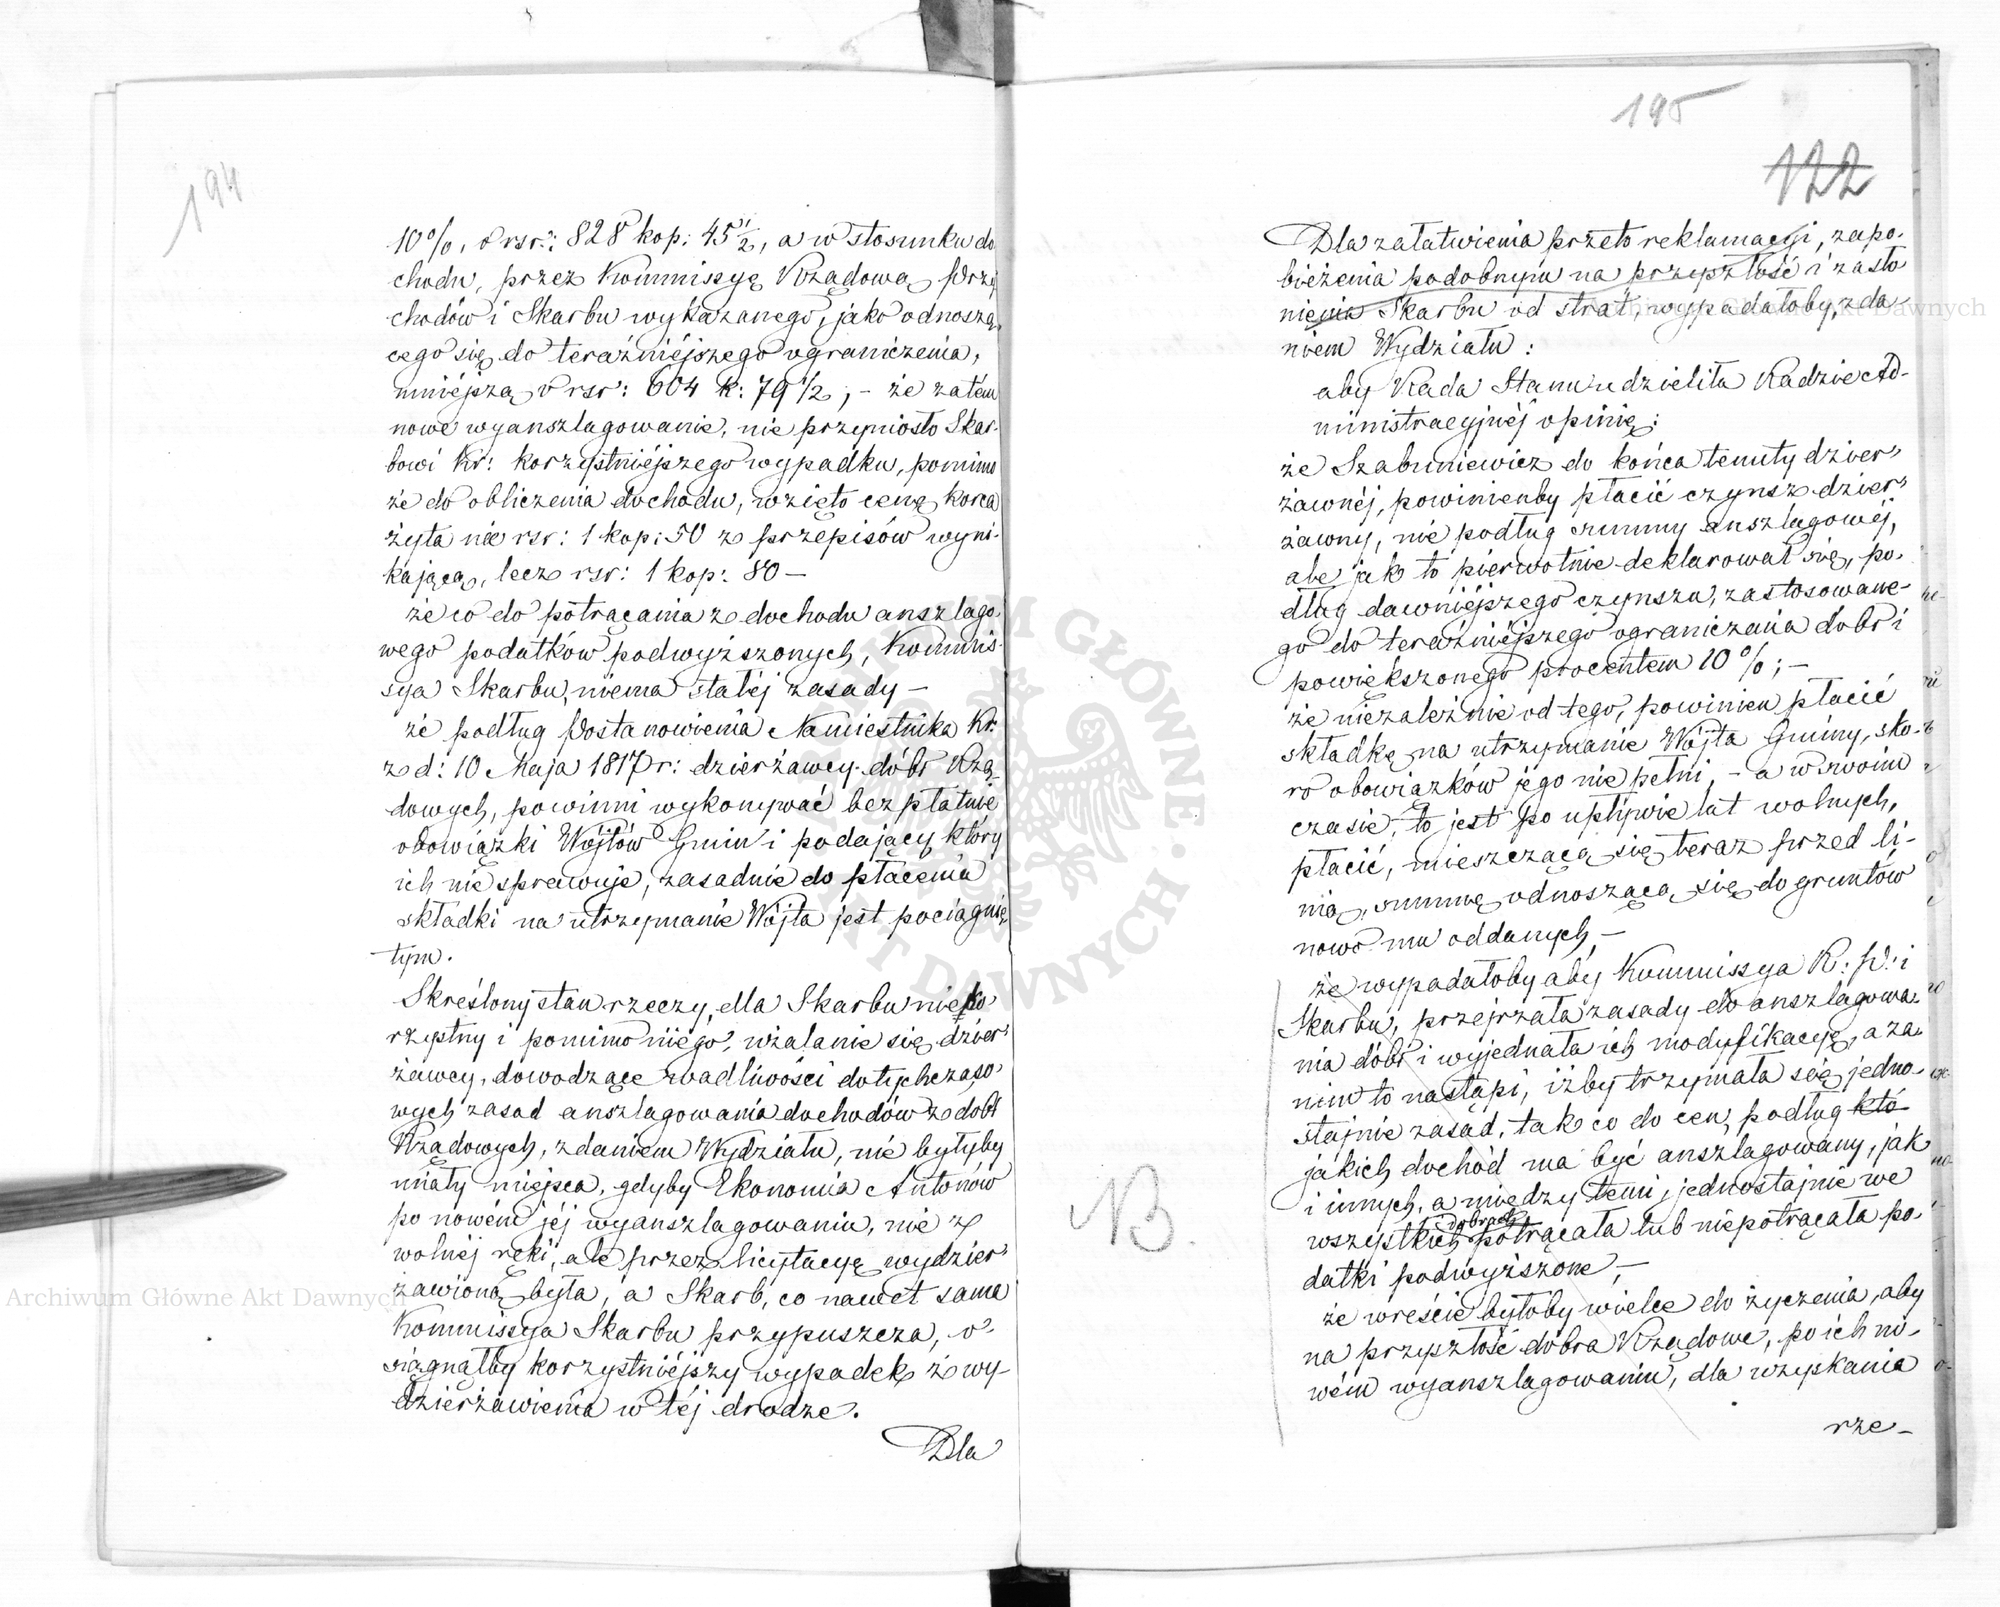 194
10%, o rsr: 828 kop: 45½, a w stosunku do
chodu, przez Kommissyę Rządową Przy
chodów i Skarbu wykazanego, jako odnoszą,
cego się do teraźniéjszego ograniczenia,
mniéjszą o rsr: 604 k: 79½; – że zatém
nowe wyanszlagowanie, nie przyniosło Skar-
bowi Kr: korzystniéjszego wypadku, pomimo
że do obliczenia dochodu, wzięto cenę korca
żyta nie rsr: 1 kop: 50 z przepisów wyni-
kającą, lecz rsr: 1 kop: 80 –
że co do potrącania z dochodu anszlago-
wego podatków podwyższonych, Kommis-
sya Skarbu, niema stałéj zasady –
że podług Postanowienia Namiestnika Kr:
z d: 10 Maja 1817 r: dzierżawcy dóbr Rzą-
dowych, powinni wykonywać bezpłatnie
obowiązki Wójtów Gmin i podający, który
ich nie sprawuje, zasadnie do płacenia
składki na utrzymanie Wójta jest pociągnię
tym.
Skreślony stan rzeczy, dla Skarbu nieko
rzystny i pomimo niego, użalanie się dzier-
żawcy, dowodzące wadliwości dotychczaso-
wych zasad anszlagowania dochodów z dóbr
Rządowych, zdaniem Wydziału, nie byłyby
miały miejsca, gdyby Ekonomia Antonów
po nowém jéj wyanszlagowaniu, nie z
wolnéj ręki, ale przez licytacyę wydzier-
żawioną była, a Skarb, co nawet sama
Kommissya Skarbu przypuszcza, o-
siągnąłby korzystniéjszy wypadek z wy-
dzierżawienia w téj drodze.
Dla
195
122
Dla załatwienia przeto reklamacyi, zapo-
bieżenia podobnym na przyszłość i zasło
nienia Skarbu od strat, wypadałoby, zda-
niem Wydziału:
aby Rada Stanu udzieliła Radzie Ad-
ministracyjnéj opinię:
że Szabuniewicz do końca tenuty dzier-
żawnéj, powinienby płacić czynsz dzier-
żawny, nie podług summy anszlagowéj,
ale jak to pierwotnie deklarował się, po-
dług dawniéjszego czynszu, zastosowane-
go do teraźniéjszego ograniczania dóbr i
powiększonego procentem 10%; –
że niezależnie od tego, powinien płacić
składkę na utrzymanie Wójta Gminy, sko-
ro obowiązków jego nie pełni, – a w swoim
czasie, to jest po upływie lat wolnych,
płacić, mieszczącą się teraz przed li-
nią, summę odnoszącą się do gruntów
nowo mu oddanych, –
że wypadałoby aby Kommissya R: P: i
Skarbu, przejrzała zasady do anszlagowa-
nia dóbr i wyjednała ich modyfikacyę, a za-
nim to nastąpi, iżby trzymała się jedno-
stajnie zasad, tak co do cen, podług któ
jakich dochód ma być anszlagowany, jak
i innych, a między temi, jednostajnie we
dobrach
wszystkich potrącała lub niepotrącała po-
datki podwyższone, –
że wreście byłoby wielce do życzenia, aby
na przyszłość dobra Rządowe, po ich no-
wém wyanszlagowaniu, dla uzyskania
rze-
NB.
Archiwum Główne Akt Dawnych
Archiwum Główne Akt Dawnych
ARCHIWUM GŁÓWNE AKT DAWNYCH